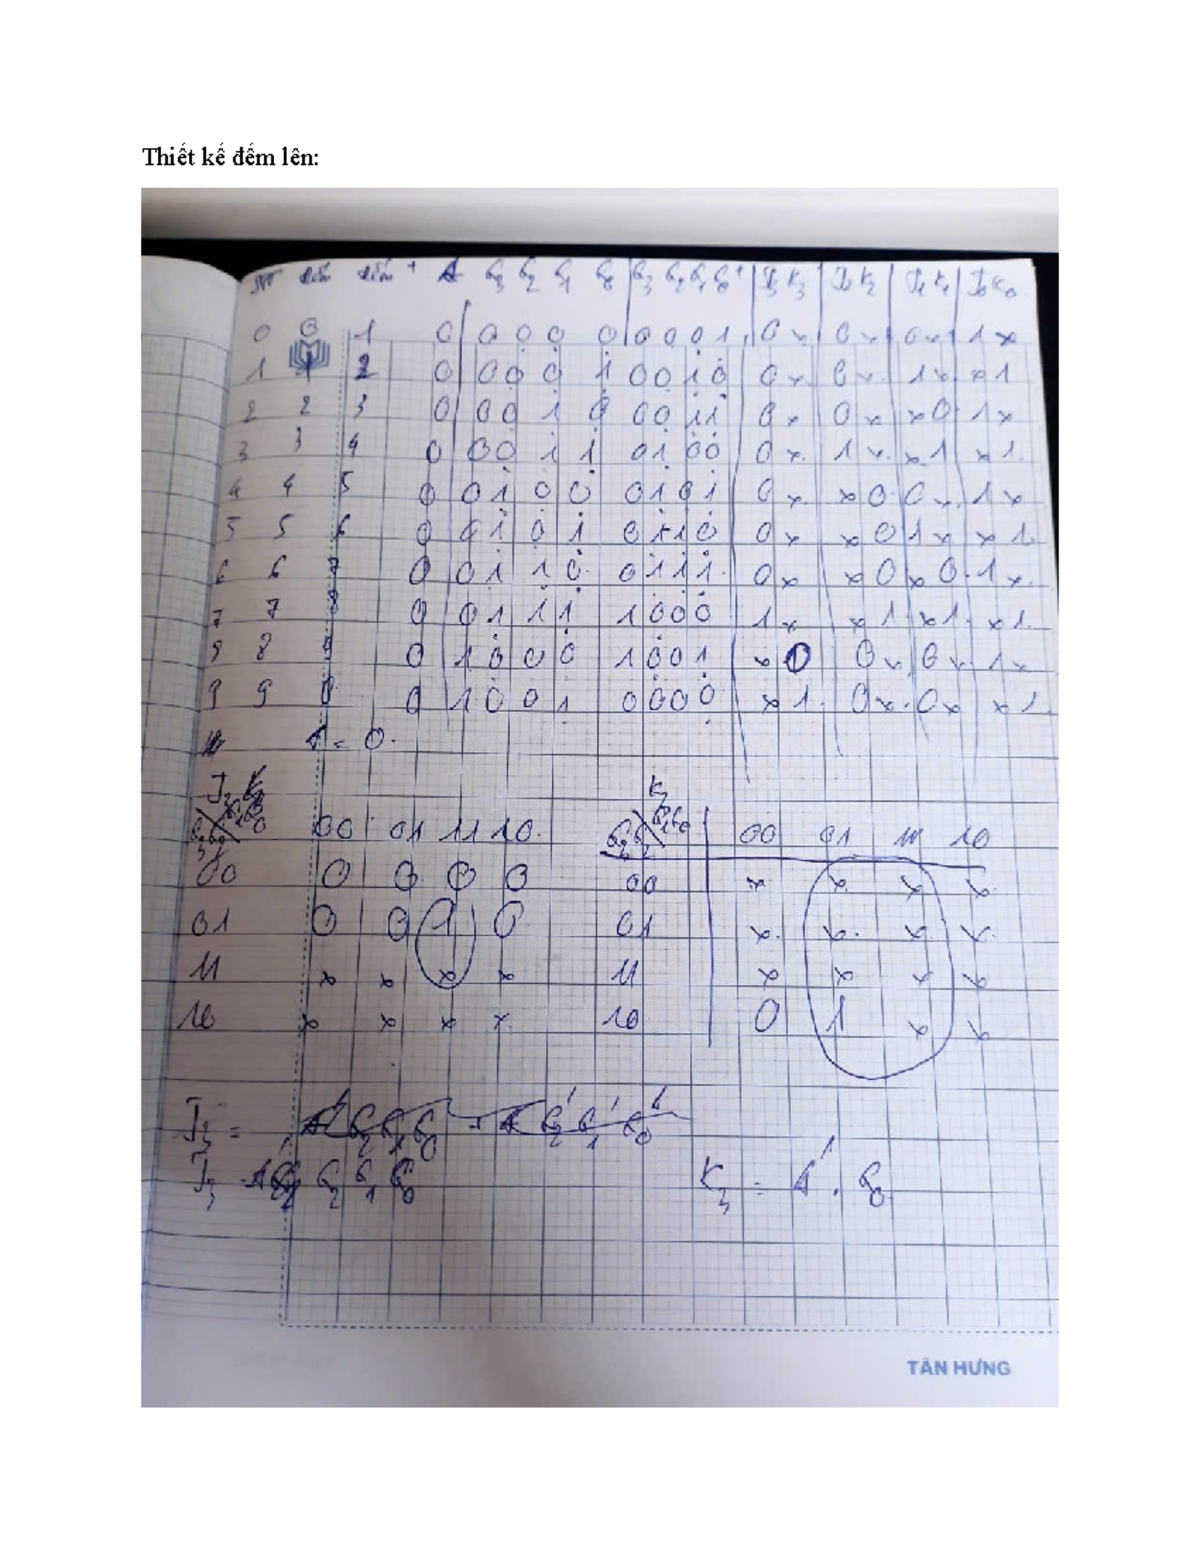 Thiết kế đếm lên:
đếm đếm + A Q3 Q2 Q1 Q0 Q3 Q2 Q1 Q0 + J3 K3 J2 K2 J1 K1 J0 K0
0 0 1 0 0 0 0 0 0 0 0 1 0 x 0 x 0 x 1 x
1 1 2 0 0 0 0 1 0 0 1 0 0 x 0 x 1 x x 1
2 2 3 0 0 0 1 0 0 0 1 1 0 x 0 x x 0 1 x
3 3 4 0 0 0 1 1 0 1 0 0 0 x 1 x x 1 x 1
4 4 5 0 0 1 0 0 0 1 0 1 0 x x 0 0 x 1 x
5 5 6 0 0 1 0 1 0 1 1 0 0 x x 0 1 x x 1
6 6 7 0 0 1 1 0 0 1 1 1 0 x x 0 x 0 1 x
7 7 8 0 0 1 1 1 1 0 0 0 1 x x 1 x 1 x 1
8 8 9 0 1 0 0 0 1 0 0 1 x 0 0 x 0 x 1 x
9 9 0 0 1 0 0 1 0 0 0 0 x 1 0 x 0 x x 1
A = 0.
J3 K3
Q3Q2 Q1Q0 00 01 11 10 Q3Q2 Q1Q0 00 01 11 10
00 0 0 0 0 00 x x x x
01 0 0 1 0 01 x x x x
11 x x x x 11 x x x x
10 x x x x 10 0 1 x x
J3 =
J3 = A' Q2 Q1 Q0 K3 = A' . Q0
TÂN HƯNG